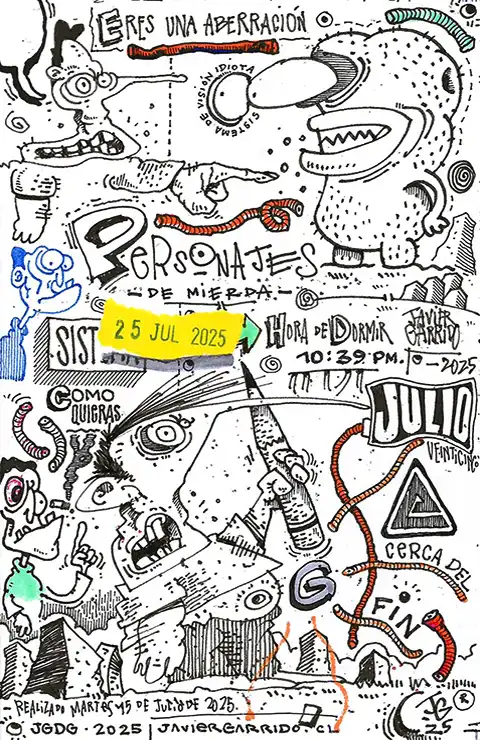 ERES UNA ABERRACIÓN
SISTEMA DE VISIÓN IDIOTA
PERSONAJES
- DE MIERDA -
SIST
25 JUL 2025
HORA DE DORMIR
10:39 PM.
JAVIER
GARRIDO
-2025
COMO
QUIERAS
JULIO
VEINTICINCO
CERCA DEL
FIN
G
REALIZADO MARTES 15 DE JULIO DE 2025.
JGDG · 2025 | JAVIERGARRIDO.CL
JG
25
®